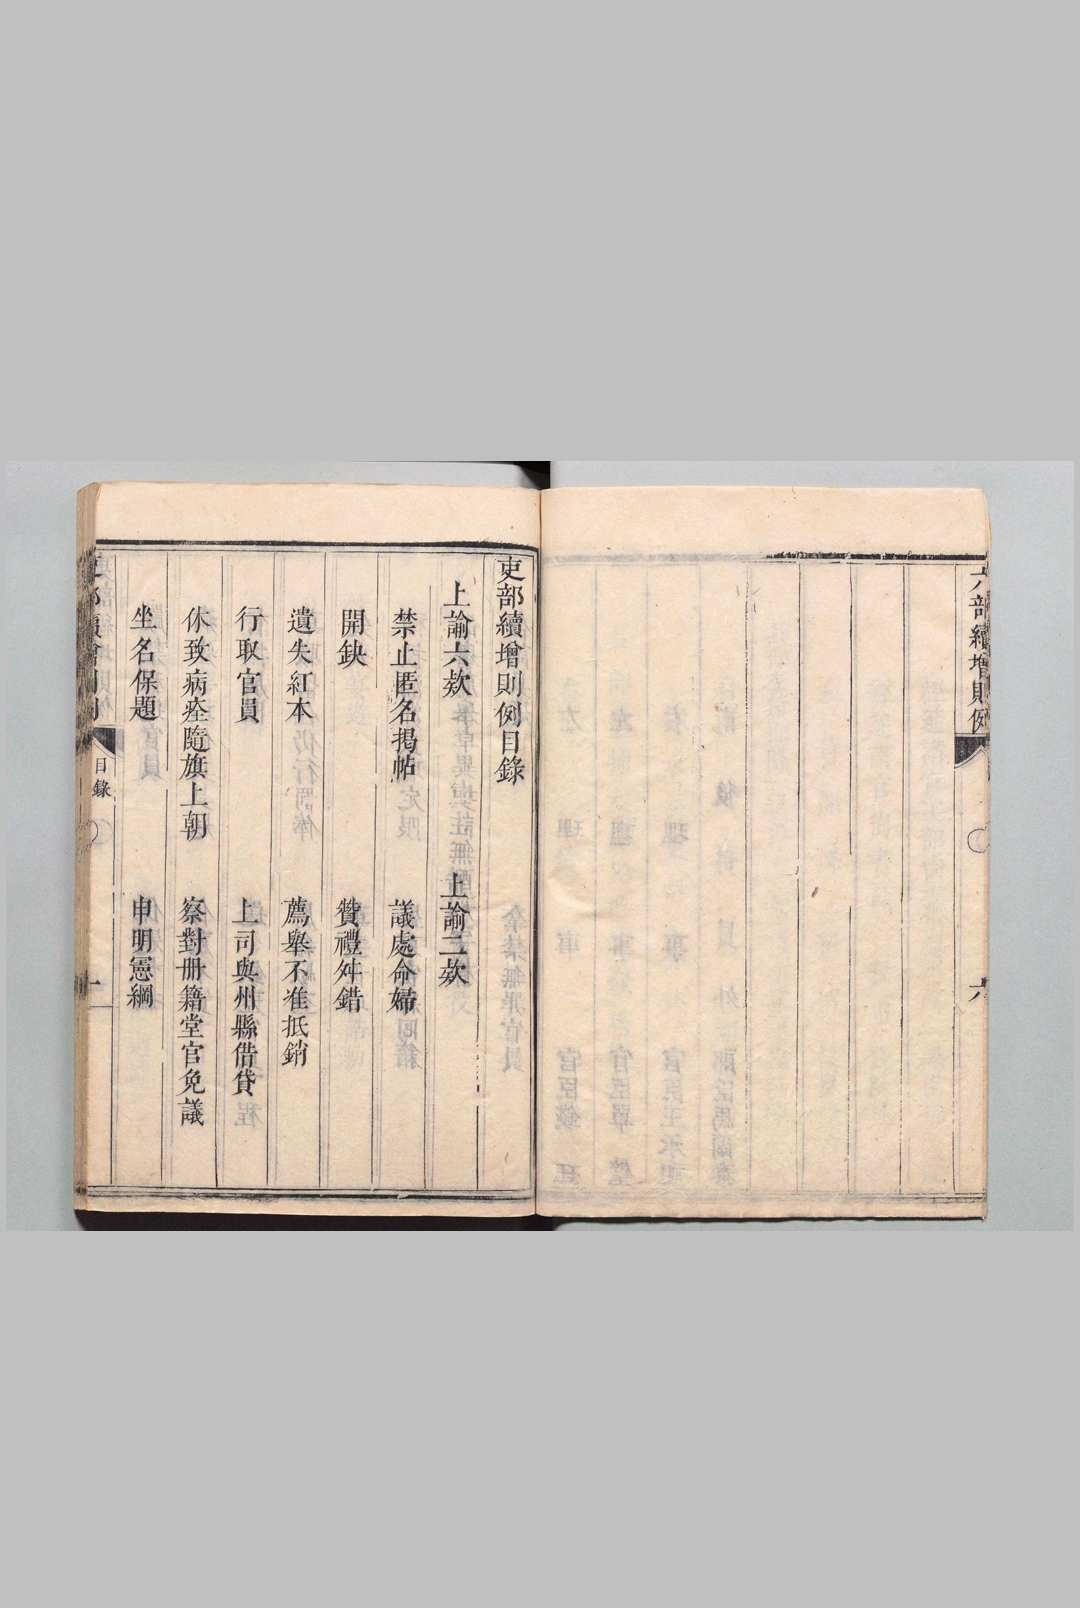 六部續增則例
六
吏部續增則例目錄
上諭六欵 上諭二欵
禁止匿名揭帖 議處命婦
開鈌 贊禮舛錯
遺失紅本 薦舉不准抵銷
行取官員 上司與州縣借貸
休致病痊隨旗上朝 察對册籍堂官免議
坐名保題 申明憲綱
目錄